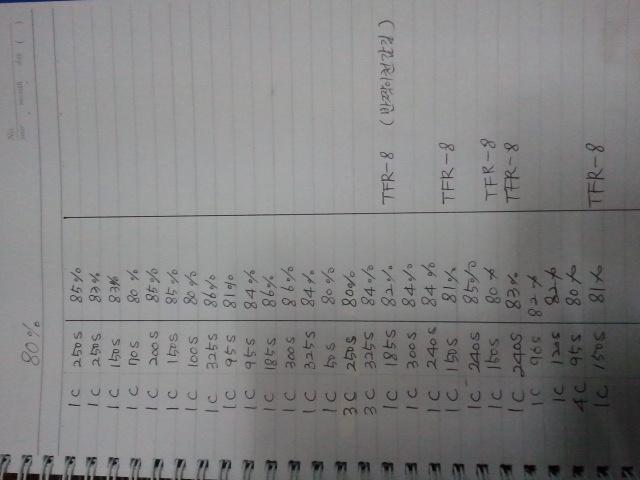 80%
1C 250S 85%
1C 250S 83%
1C 150S 83%
1C 170S 80%
1C 200S 85%
1C 150S 85%
1C 100S 80%
1C 325S 86%
1C 95S 81%
1C 95S 84%
1C 185S 86%
1C 300S 86%
1C 325S 84%
1C 50S 80%
3C 250S 80%
3C 325S 84%
1C 185S 82% TFR-8
1C 300S 84%
1C 240S 84%
1C 150S 81% TFR-8
1C 240S 85%
1C 150S 80% TFR-8
1C 240S 83% TFR-8
1C 90S 82%
1C 120S 82%
4C 95S 80%
1C 150S 81% TFR-8